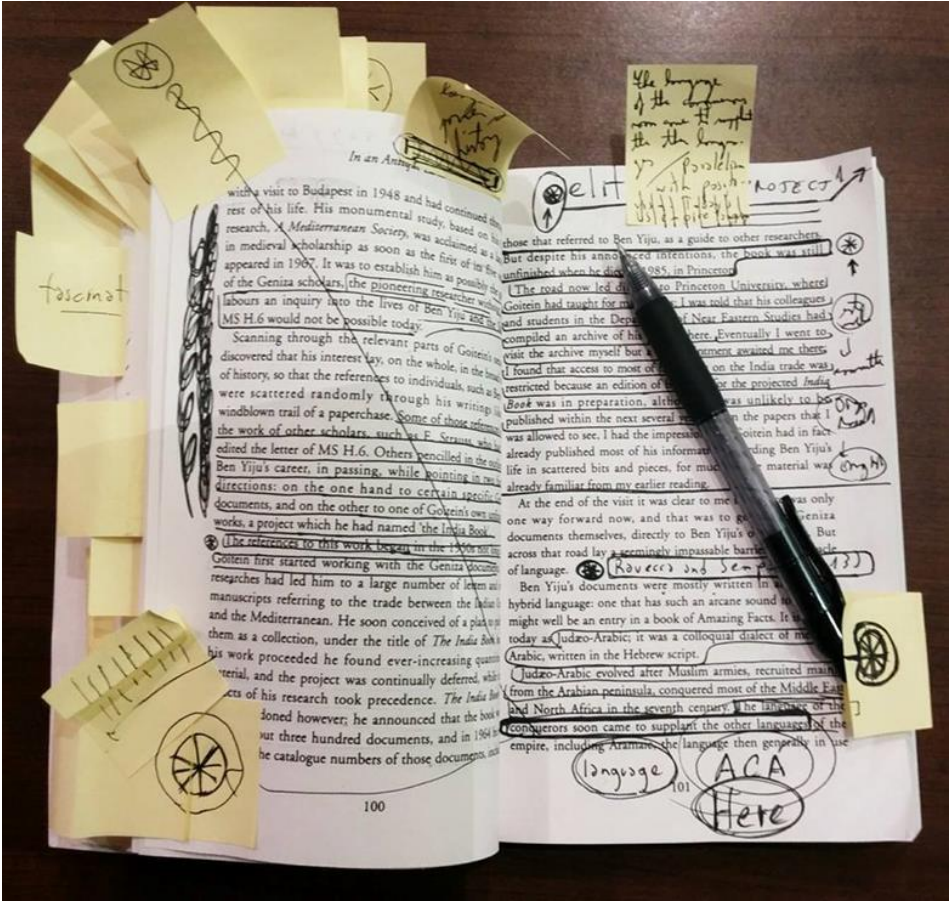 In an Antique
with a visit to Budapest in 1948 and had continued
rest of his life. His monumental study, based on
research, A Mediterranean Society, was acclaimed as a
in medieval scholarship as soon as the first of its five
appeared in 1967. It was to establish him as possibly the
of the Geniza scholars, the pioneering researcher
labours an inquiry into the lives of Ben Yiju and the
MS H.6 would not be possible today.
Scanning through the relevant parts of Goitein's
discovered that his interest lay, on the whole, in the
of history, so that the references to individuals, such as
were scattered randomly through his writings
windblown trail of a paperchase. Some of those
the work of other scholars, such as E. Strauss, who
edited the letter of MS H.6. Others pencilled in the
Ben Yiju's career, in passing, while pointing in two
directions: on the one hand to certain specific
documents, and on the other to one of Goitein's own
works, a project which he had named 'the India Book
The references to this work began in the 1950s not long
Goitein first started working with the Geniza
researches had led him to a large number of letters and
manuscripts referring to the trade between the Indian
and the Mediterranean. He soon conceived of a plan to
them as a collection, under the title of The India Book
his work proceeded he found ever-increasing
and the project was continually deferred, while
of his research took precedence. The India Book
however; he announced that the book
three hundred documents, and in 1964
the catalogue numbers of those documents,
100
fascinat
history
The language
of the conquerors
soon to
the
with
elit PROJECT
those that referred to Ben Yiju, as a guide to other researchers.
But despite his intentions, the book was still
unfinished when he 1985, in Princeton
The road now led to Princeton University, where
Goitein had taught for I was told that his colleagues
and students in the of Near Eastern Studies had
compiled an archive of his there. Eventually I went to
visit the archive myself but a awaited me there,
I found that access to most of on the India trade was
restricted because an edition of for the projected India
Book was in preparation, was unlikely to be
published within the next several the papers that I
was allowed to see, I had the Goitein had in fact
already published most of his Ben Yiju's
life in scattered bits and pieces, for material was
already familiar from my earlier reading.
At the end of the visit it was clear to me was only
one way forward now, and that was to Geniza
documents themselves, directly to Ben Yiju's But
across that road lay a seemingly impassable
of language. Ravecca and
Ben Yiju's documents were mostly written in
hybrid language: one that has such an arcane sound to
might well be an entry in a book of Amazing Facts. It is
today as Judæo-Arabic; it was a colloquial dialect of
Arabic, written in the Hebrew script.
Judæo-Arabic evolved after Muslim armies, recruited
from the Arabian peninsula, conquered most of the Middle East
and North Africa in the seventh century. The language of the
conquerors soon came to supplant the other languages of the
empire, including Aramaic, the language then generally in use
language
ACA
101
Here